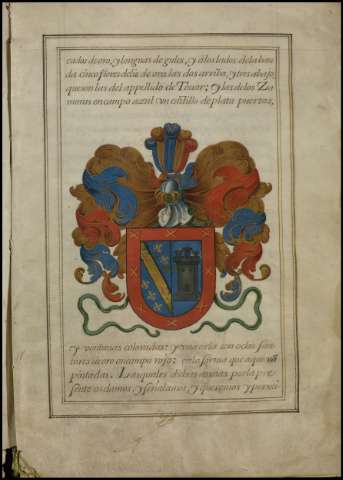 cados de oro, y lenguas de gules, y a los lados de la banda
da cinco flores delis de oro las dos arriba, y tres abajo
que son las del appellido de Touar; y las de los Za
moras en campo azul un castillo de plata puertas,
y ventanas coloradas: y una orla con ocho san
tores de oro en campo rojo; en la forma que aqui van
pintadas. Las quales dichas armas por la pre
sente os damos, y señalamos, y queremos y permi